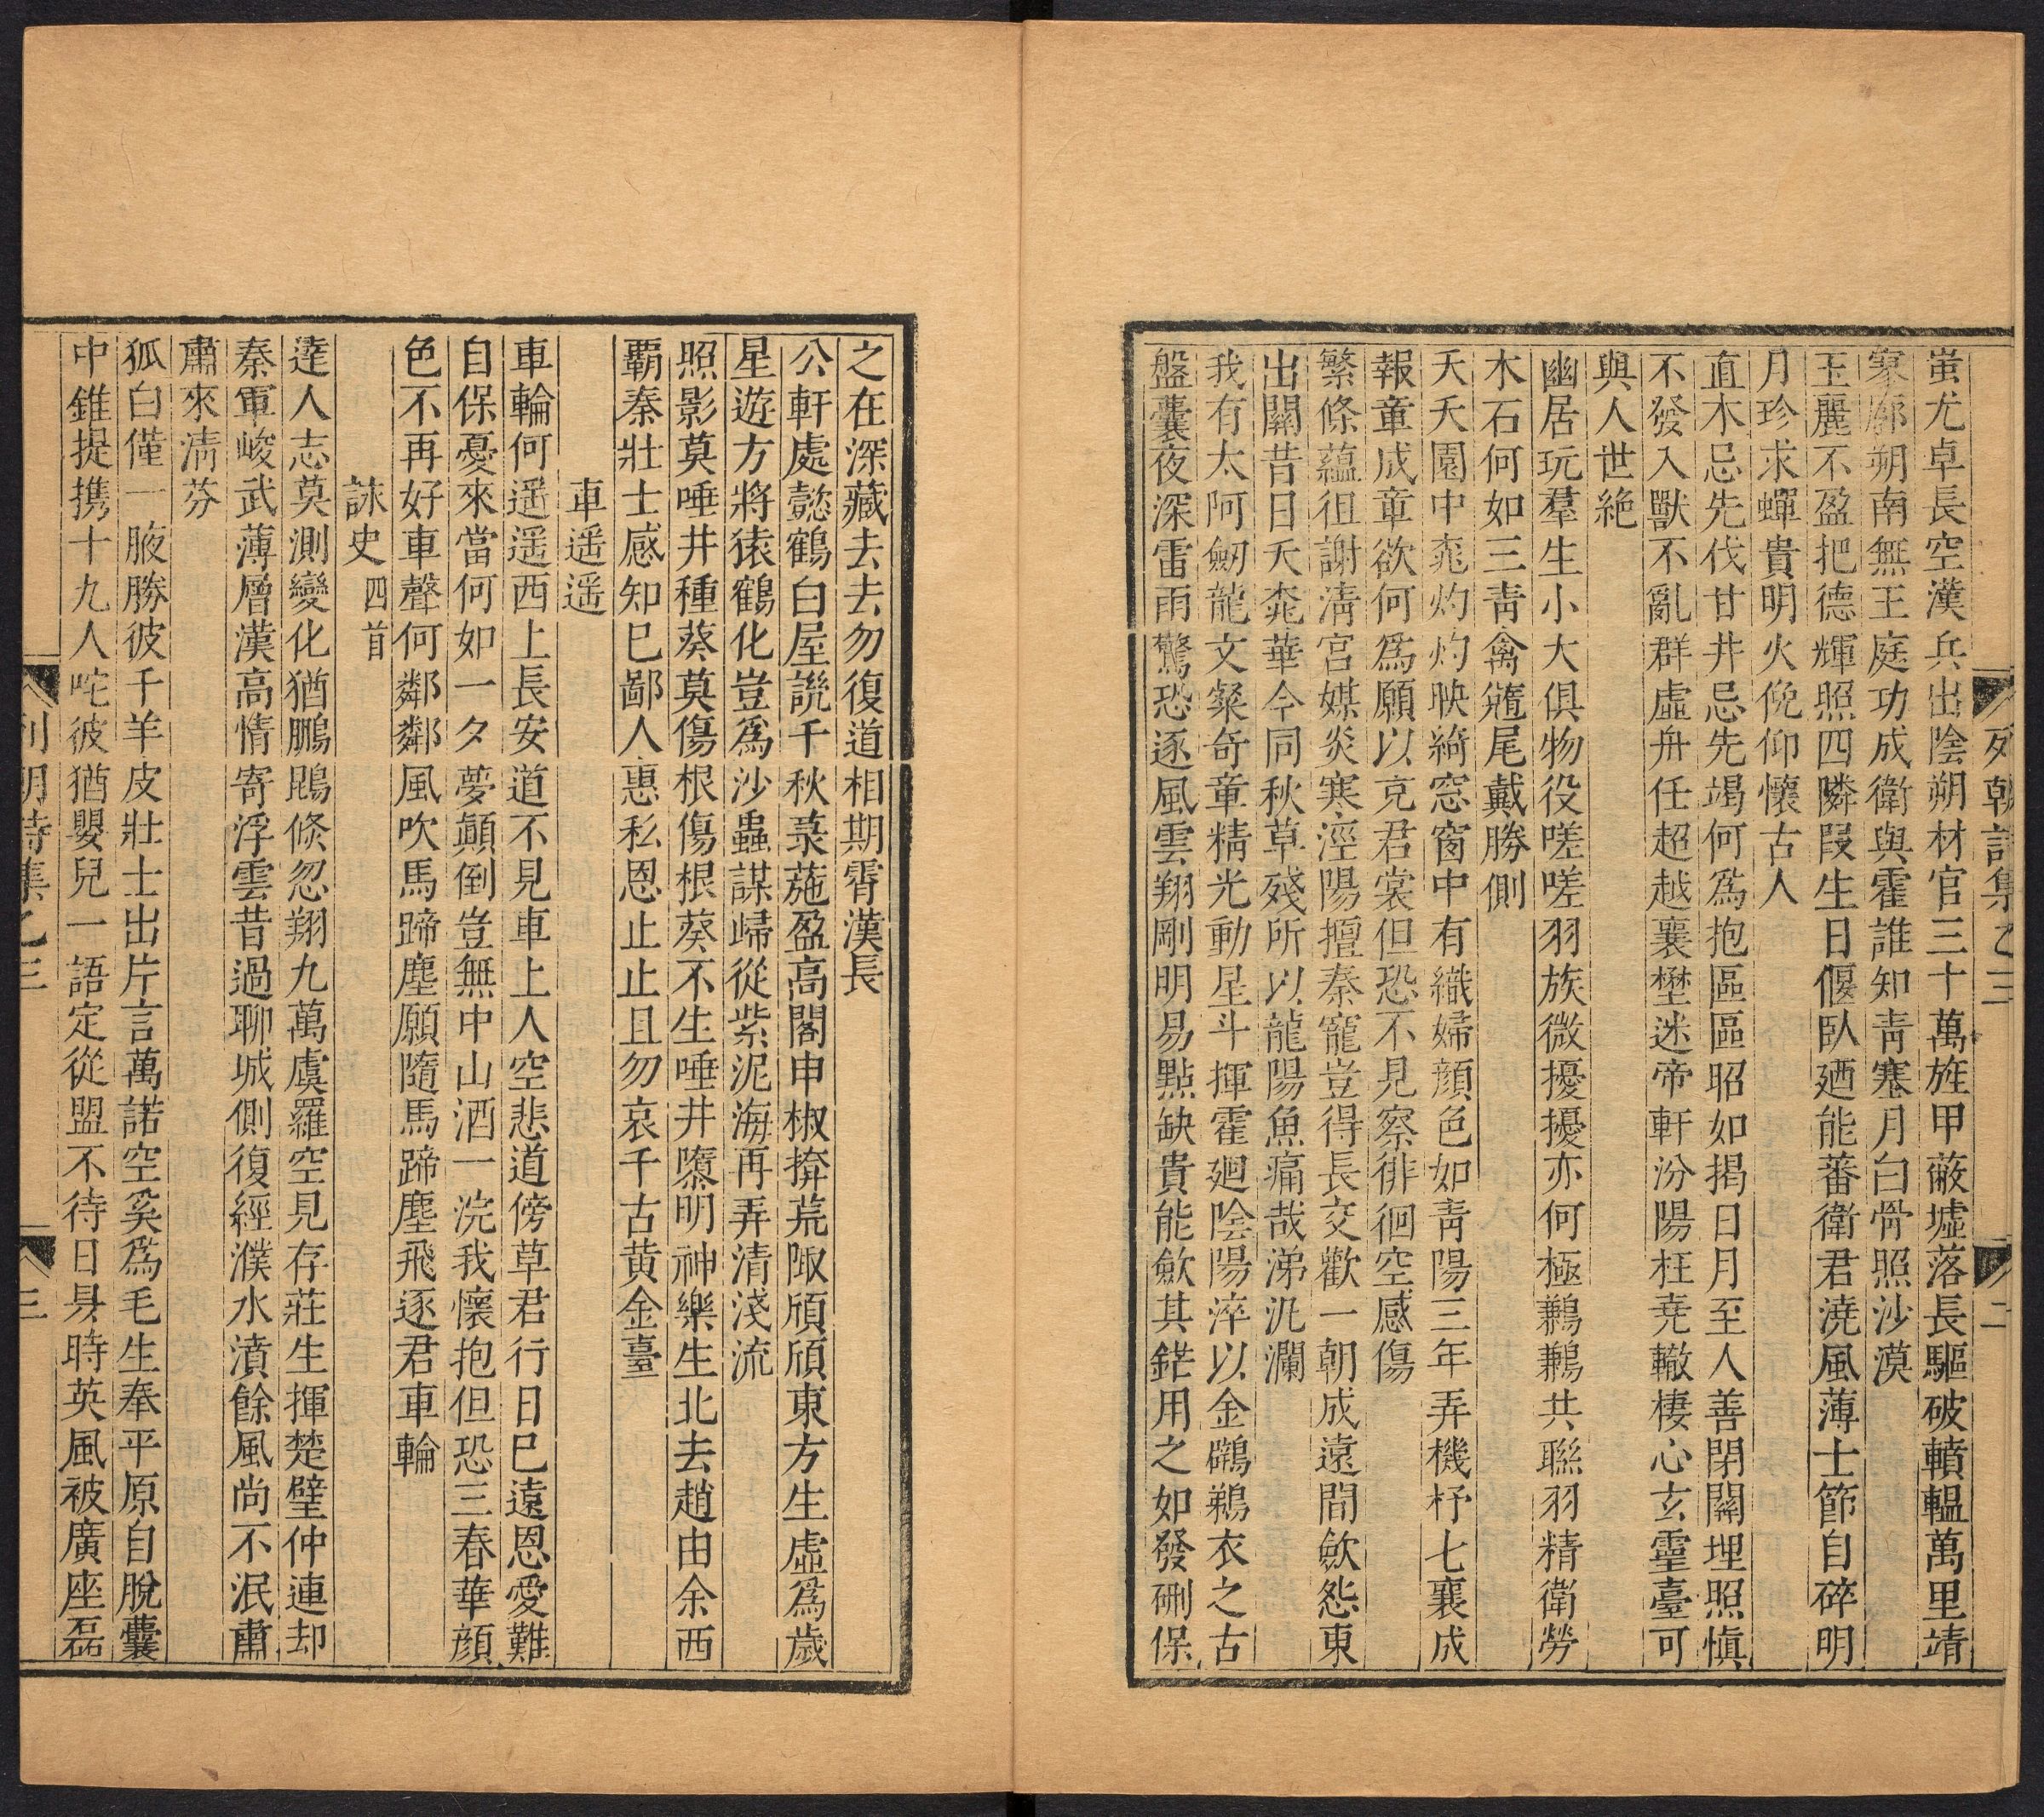 蚩尤卓長空漢兵出陰朔材官三十萬旌甲蔽墟落長驅破轒轀萬里靖
寥廓朔南無王庭功成衛與霍誰知靑塞月白骨照沙漠
玉麗不盈把德輝照四隣叚生日偃臥廼能蕃衛君澆風薄士節自碎明
月珍求蟬貴明火俛仰懷古人
直木忌先伐甘井忌先竭何爲抱區區昭如揭日月至人善閉關埋照愼
不發入獸不亂群虛舟任超越襄壄迷帝軒汾陽枉堯轍棲心玄靈臺可
與人世絶
幽居玩羣生小大俱物役嗟嗟羽族微擾擾亦何極鶼鶼共聯羽精衛勞
木石何如三靑禽豵尾戴勝側
夭夭園中桃灼灼映綺窓窗中有織婦顔色如靑陽三年弄機杼七襄成
報章成章欲何爲願以克君裳但恐不見察徘徊空感傷
繁條蘊徂謝淸宮媒炎寒涇陽擅秦寵豈得長交歡一朝成遠間歛怨東
出關昔日夭桃華今同秋草殘所以龍陽魚痛哉涕汍瀾
我有太阿劒龍文粲奇章精光動星斗揮霍廻陰陽淬以金鸊鵜衣之古
盤囊夜深雷雨驚恐逐風雲翔剛明易點缺貴能歛其鋩用之如發硎保
列朝詩集乙三 二
之在深藏去去勿復道相期霄漢長
公軒處懿鶴白屋説千秋菉葹盈高閣申椒揜荒陬頎頎東方生虛爲歲
星遊方將猿鶴化豈爲沙蟲謀歸從紫泥海再弄清淺流
照影莫唾井種葵莫傷根傷根葵不生唾井隳明神樂生北去趙由余西
覇秦壯士感知巳鄙人惠私恩止止且勿哀千古黄金臺
車遥遥
車輪何遥遥西上長安道不見車上人空悲道傍草君行日巳遠恩愛難
自保憂來當何如一夕夢顚倒豈無中山酒一浣我懷抱但恐三春華顔
色不再好車聲何鄰鄰風吹馬蹄塵願隨馬蹄塵飛逐君車輪
詠史 四首
達人志莫測變化猶鵬鵾倐忽翔九萬虞羅空見存莊生揮楚璧仲連却
秦軍峻武薄層漢高情寄浮雲昔過聊城側復經濮水濆餘風尚不泯肅
肅來淸芬
狐白僅一腋勝彼千羊皮壯士出片言萬諾空奚爲毛生奉平原自脫囊
中錐提携十九人咤彼猶嬰兒一語定從盟不待日昃時英風被廣座磊
列朝詩集乙三 三